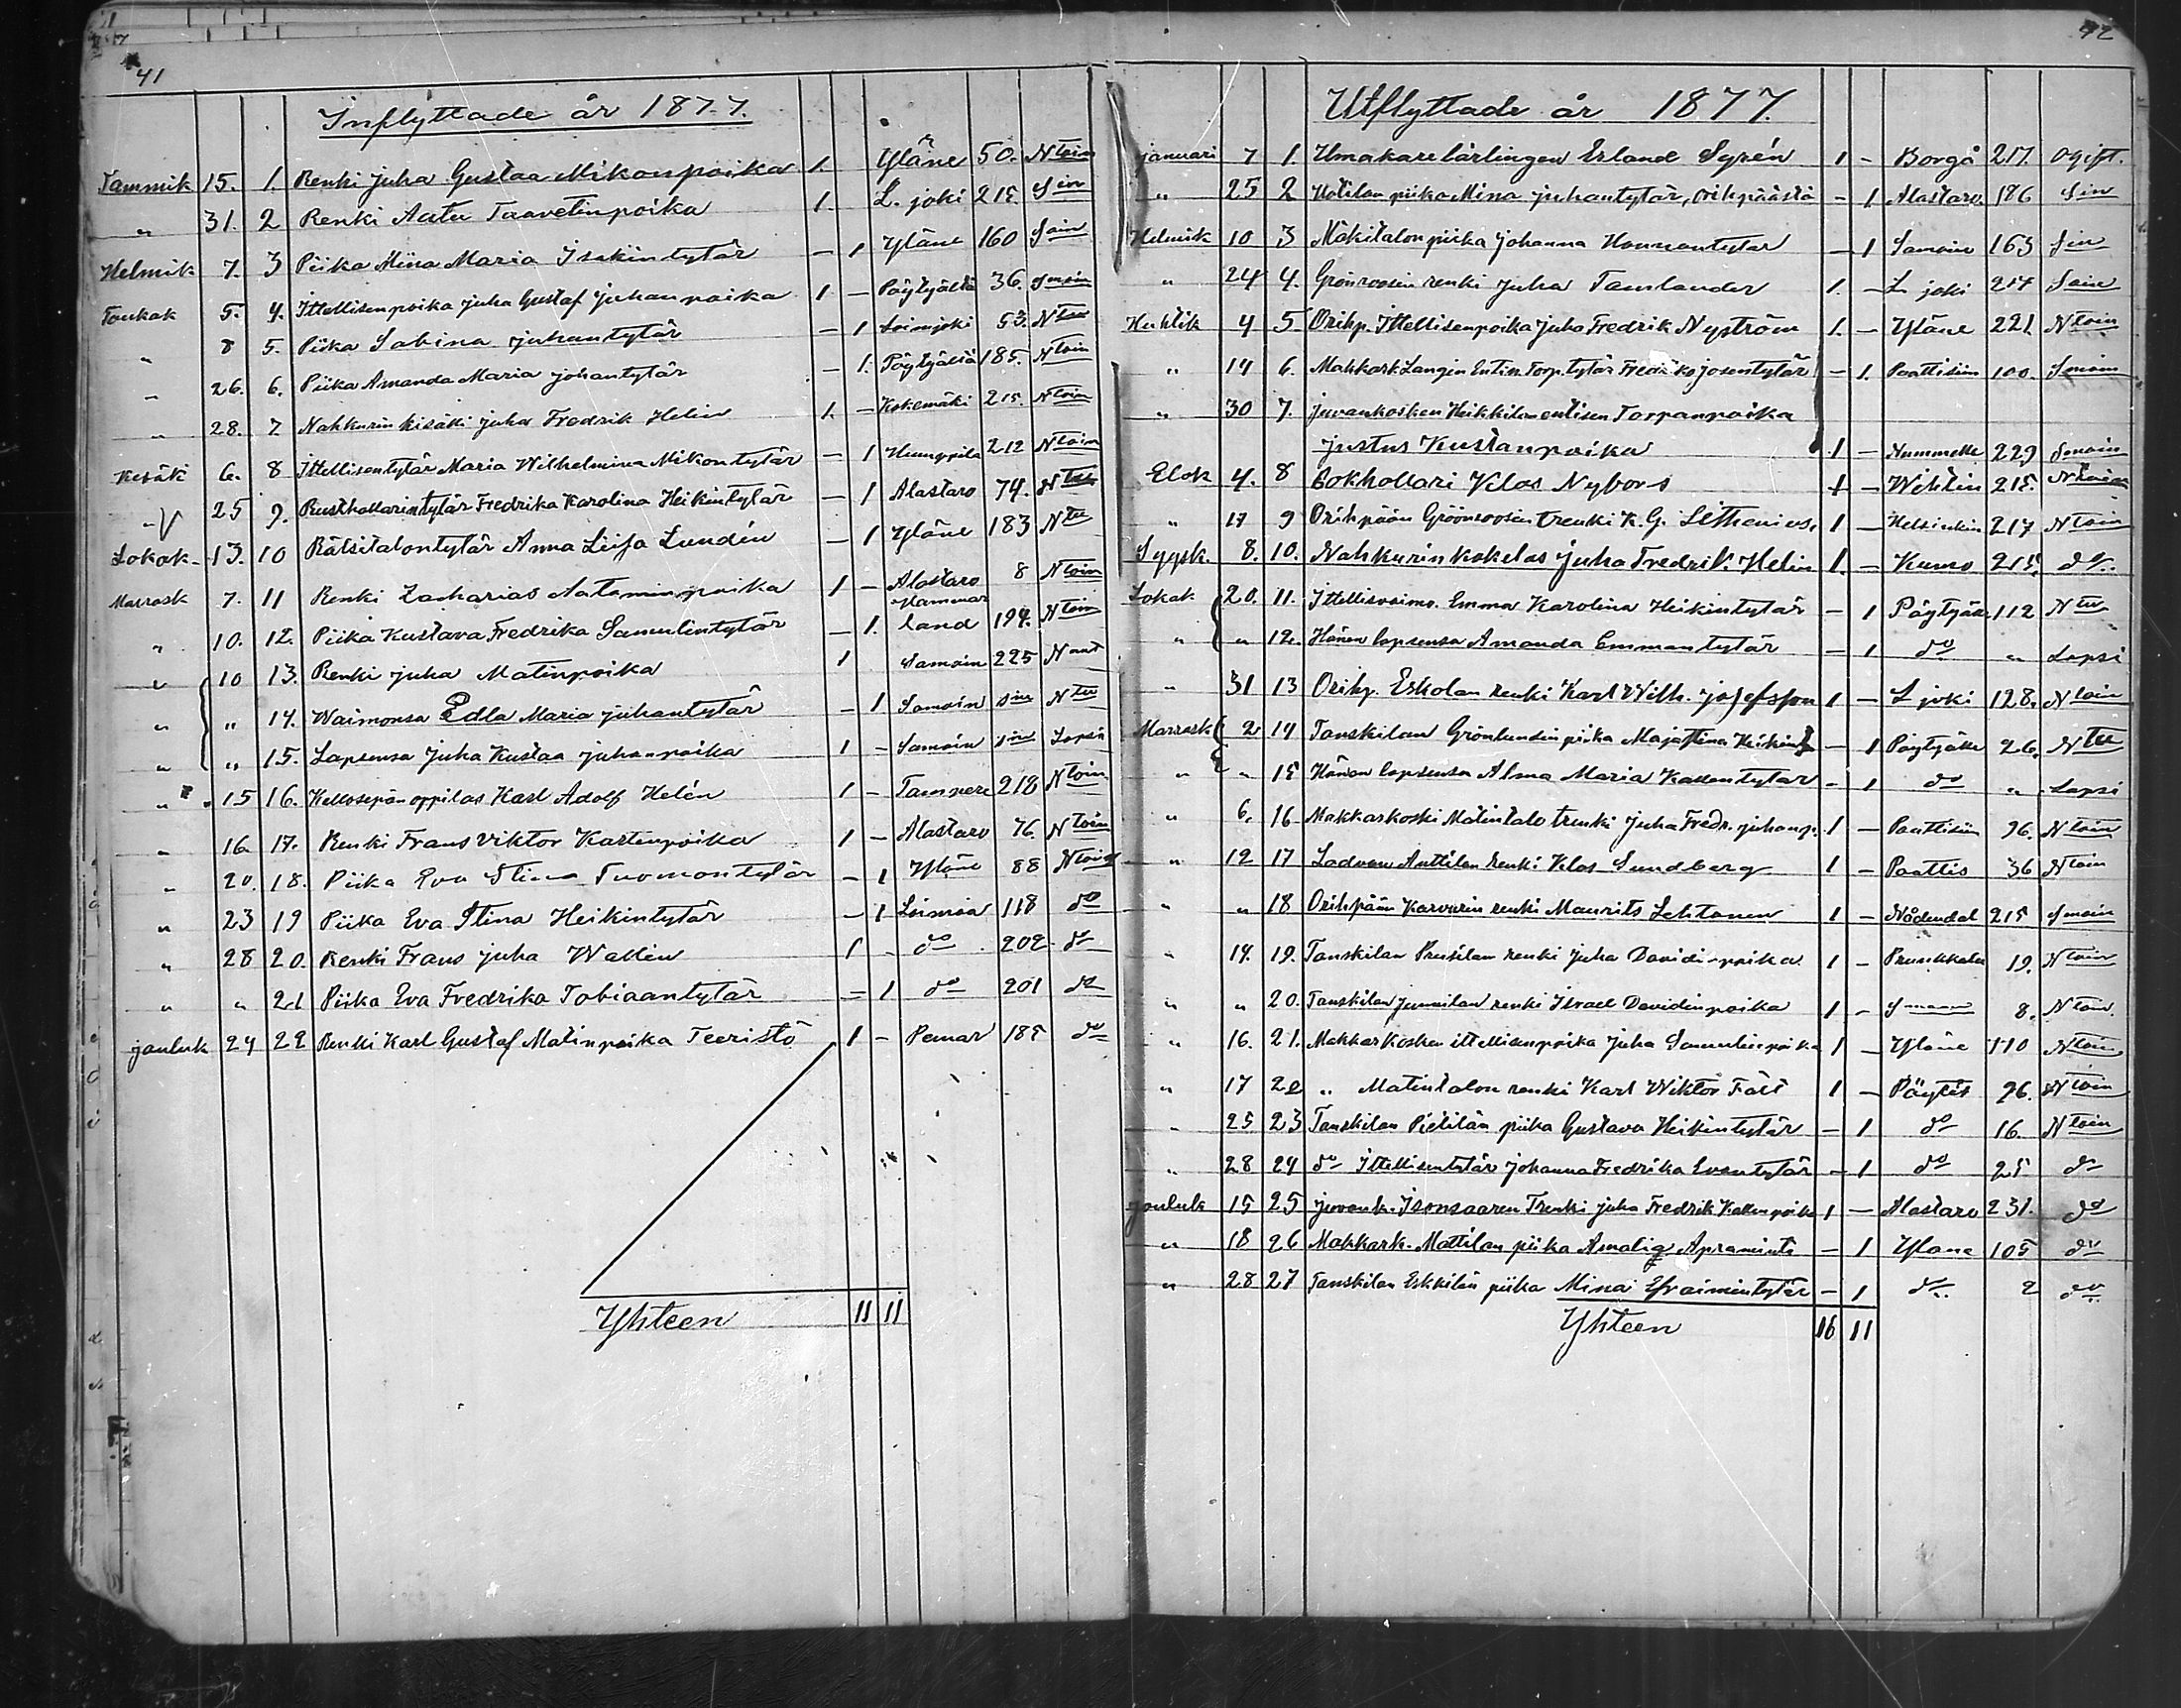 41
Inflyttade år 1877.
Tammik 15. 1. Renki Juha Gustaa Mikonpoika 1. Yläne 50. N toin
" 31. 2 Renki Aatu Taavetinpoika 1. L. joki 215 S in
Helmik 7. 3 Piika Miina Maria Isakintytär - 1 Yläne 160 S ain
Toukok 5. 4. Ittellisenpoika Juha Gustaf Juhanpoika 1 - Pöytyältä 36. Smoin
" 8 5. Piika Sabina Juhantytär - 1 Loimjoki 53. N
" 26. 6. Piika Amanda Maria Johantytär - 1. Pöytyältä 185. N toin
" 28. 7 Nahkurin kisälli Juha Fredrik Helin 1. - Kokemäki 215. N toin
Kesäk 6. 8 Ittellisentytär Maria Wilhelmina Mikontytär - 1 Humppila 212 N toin
" 25 9. Rusthollarintytär Fredrika Karolina Heikintytär - 1 Alastaro 74. N tu
Lokak 13. 10 Rätsitalontytär Anna Liisa Lundén - 1 Yläne 183 N tu
Marrask 7. 11 Renki Zacharias Aataminpoika 1 - Alastaro 8 N toin
" 10. 12. Piika Kustava Fredrika Samulintytär - 1. Hammarland 194. N toin
" 10 13. Renki Juha Matinpoika 1 Samoin 225 N
" " 14. Waimonsa Edla Maria Juhantytär - 1 Samoin N tu
" " 15. Lapsensa Juha Kustaa Juhanpoika 1 - Samoin Lapsi
" 15 16. Kellosepän oppilas Karl Adolf Helén 1 - Tampere 218 N toin
" 16 17. Renki Frans Viktor Kartenpoika 1 - Alastaro 76. N toin
" 20. 18. Piika Eva Stina Tuomontytär - 1 Yläne 88 N toin
" 23 19 Piika Eva Stina Heikintytär - 1 Loimaa 118 do
" 28 20. Renki Frans Juha Wallin 1 - do 202 do
" " 21 Piika Eva Fredrika Tobiaantytär - 1 do 201 do
Jouluk 24 22 Renki Karl Gustaf Matinpoika Teeristö 1 - Pemar 185 do
Yhteen 11 11
42
Utflyttade år 1877.
Januari 7 1. Urmakarelärlingen Erland Syrén 1 - Borgå 217. Ogift.
" 25 2 piika Mina Juhantytär, Orihpäästä - 1. Alastaro 186 S in
Helmik 10 3 Mäkitalon piika Johanna Hannantytär - 1 Samoin 163 S in
" 24 4. Grönroosin renki Juha Tamlander 1. - L joki 214 S ain
Huhtik 4 5 Orihp. Ittellisenpoika Juho Fredrik Nyström 1. - Yläne 221 N toin
" 14 6. Mahkark Langin Entin. Torp.tytär Fredrika Josentytär - 1. Paattisiin 100. Smoin
" 30 7. Juvankosken Heikkilän entisen Torpanpoika
Justus Kustanpoika 1 - Nummelle 229 Smoin
Elok 4. 8 Bokhollari Klas Nybors 1 - Wihtiin 215. N toin
" 17 9 Orihpään Gröönroosin trenki K. G. Lithenius, 1 - Helsinkiin 217 N toin
Syysk. 8. 10. Nahkurin kokelas Juha Fredrik Helin 1. - Kumo 215. do.
Lokak 20. 11. Emma Karolina Heikintytär - 1 Pöytyälle 112 N tu
" " 12. Hänen lapsensa Amanda Emmantytär - 1 do " Lapsi
" 31 13 Orihp. Eskolan renki Karl Wilh. Josefsson 1 - L joki 128. N toin
Marrask 2 14 Tanskilan Grönlundin piika Majastina - 1 Pöytyälle 26. N tu
" " 15 Hänen lapsensa Alma Maria Kallentytär - 1 do " Lapsi
" 6. 16 Makkarkoski Matintalo trenki Juha Fredr. Juhanp. 1 - Paattisiin 96. N toin
" 12 17 Anttilan renki Klas Sundberg 1 - Paattis 36 N toin
" " 18 Orihpään Karvurin renki Maurits Lehtonen 1 - Nådendal 215 Smoin
" 14. 19. Tanskilan Prusilan renki Juha Davidinpoika 1 - Prunkkala 19. N toin
" " 20. Tanskilan Junnilan renki Israel Davidinpoika 1 - 8. N toin
" 16. 21. Makkarkosken ittellisenpoika Juha Samulinpoika 1 - Yläne 110 N toin
" 17 22 " Matintalon renki Karl Wiktor Fält 1 - Pöytis 96. N toin
" 25 23 Tanskilan Pietilän piika Gustava Heikintytär - 1 do 16. N toin
" 28 24 do Ittellisentytär Johanna Fredrika Evantytär - 1 do 25 do
Jouluk 15 25 Juvank. Isonsaaren Trenki Juha Fredrik Kallenpoika 1 - Alastaro 231. do
" 18 26 Makkark. Mattilan piika Amalia - 1 Yläne 105 do
" 28 27 Tanskilan Eskkilän piika Mina Efraimintytär - 1 do 2 do
Yhteen 16 11